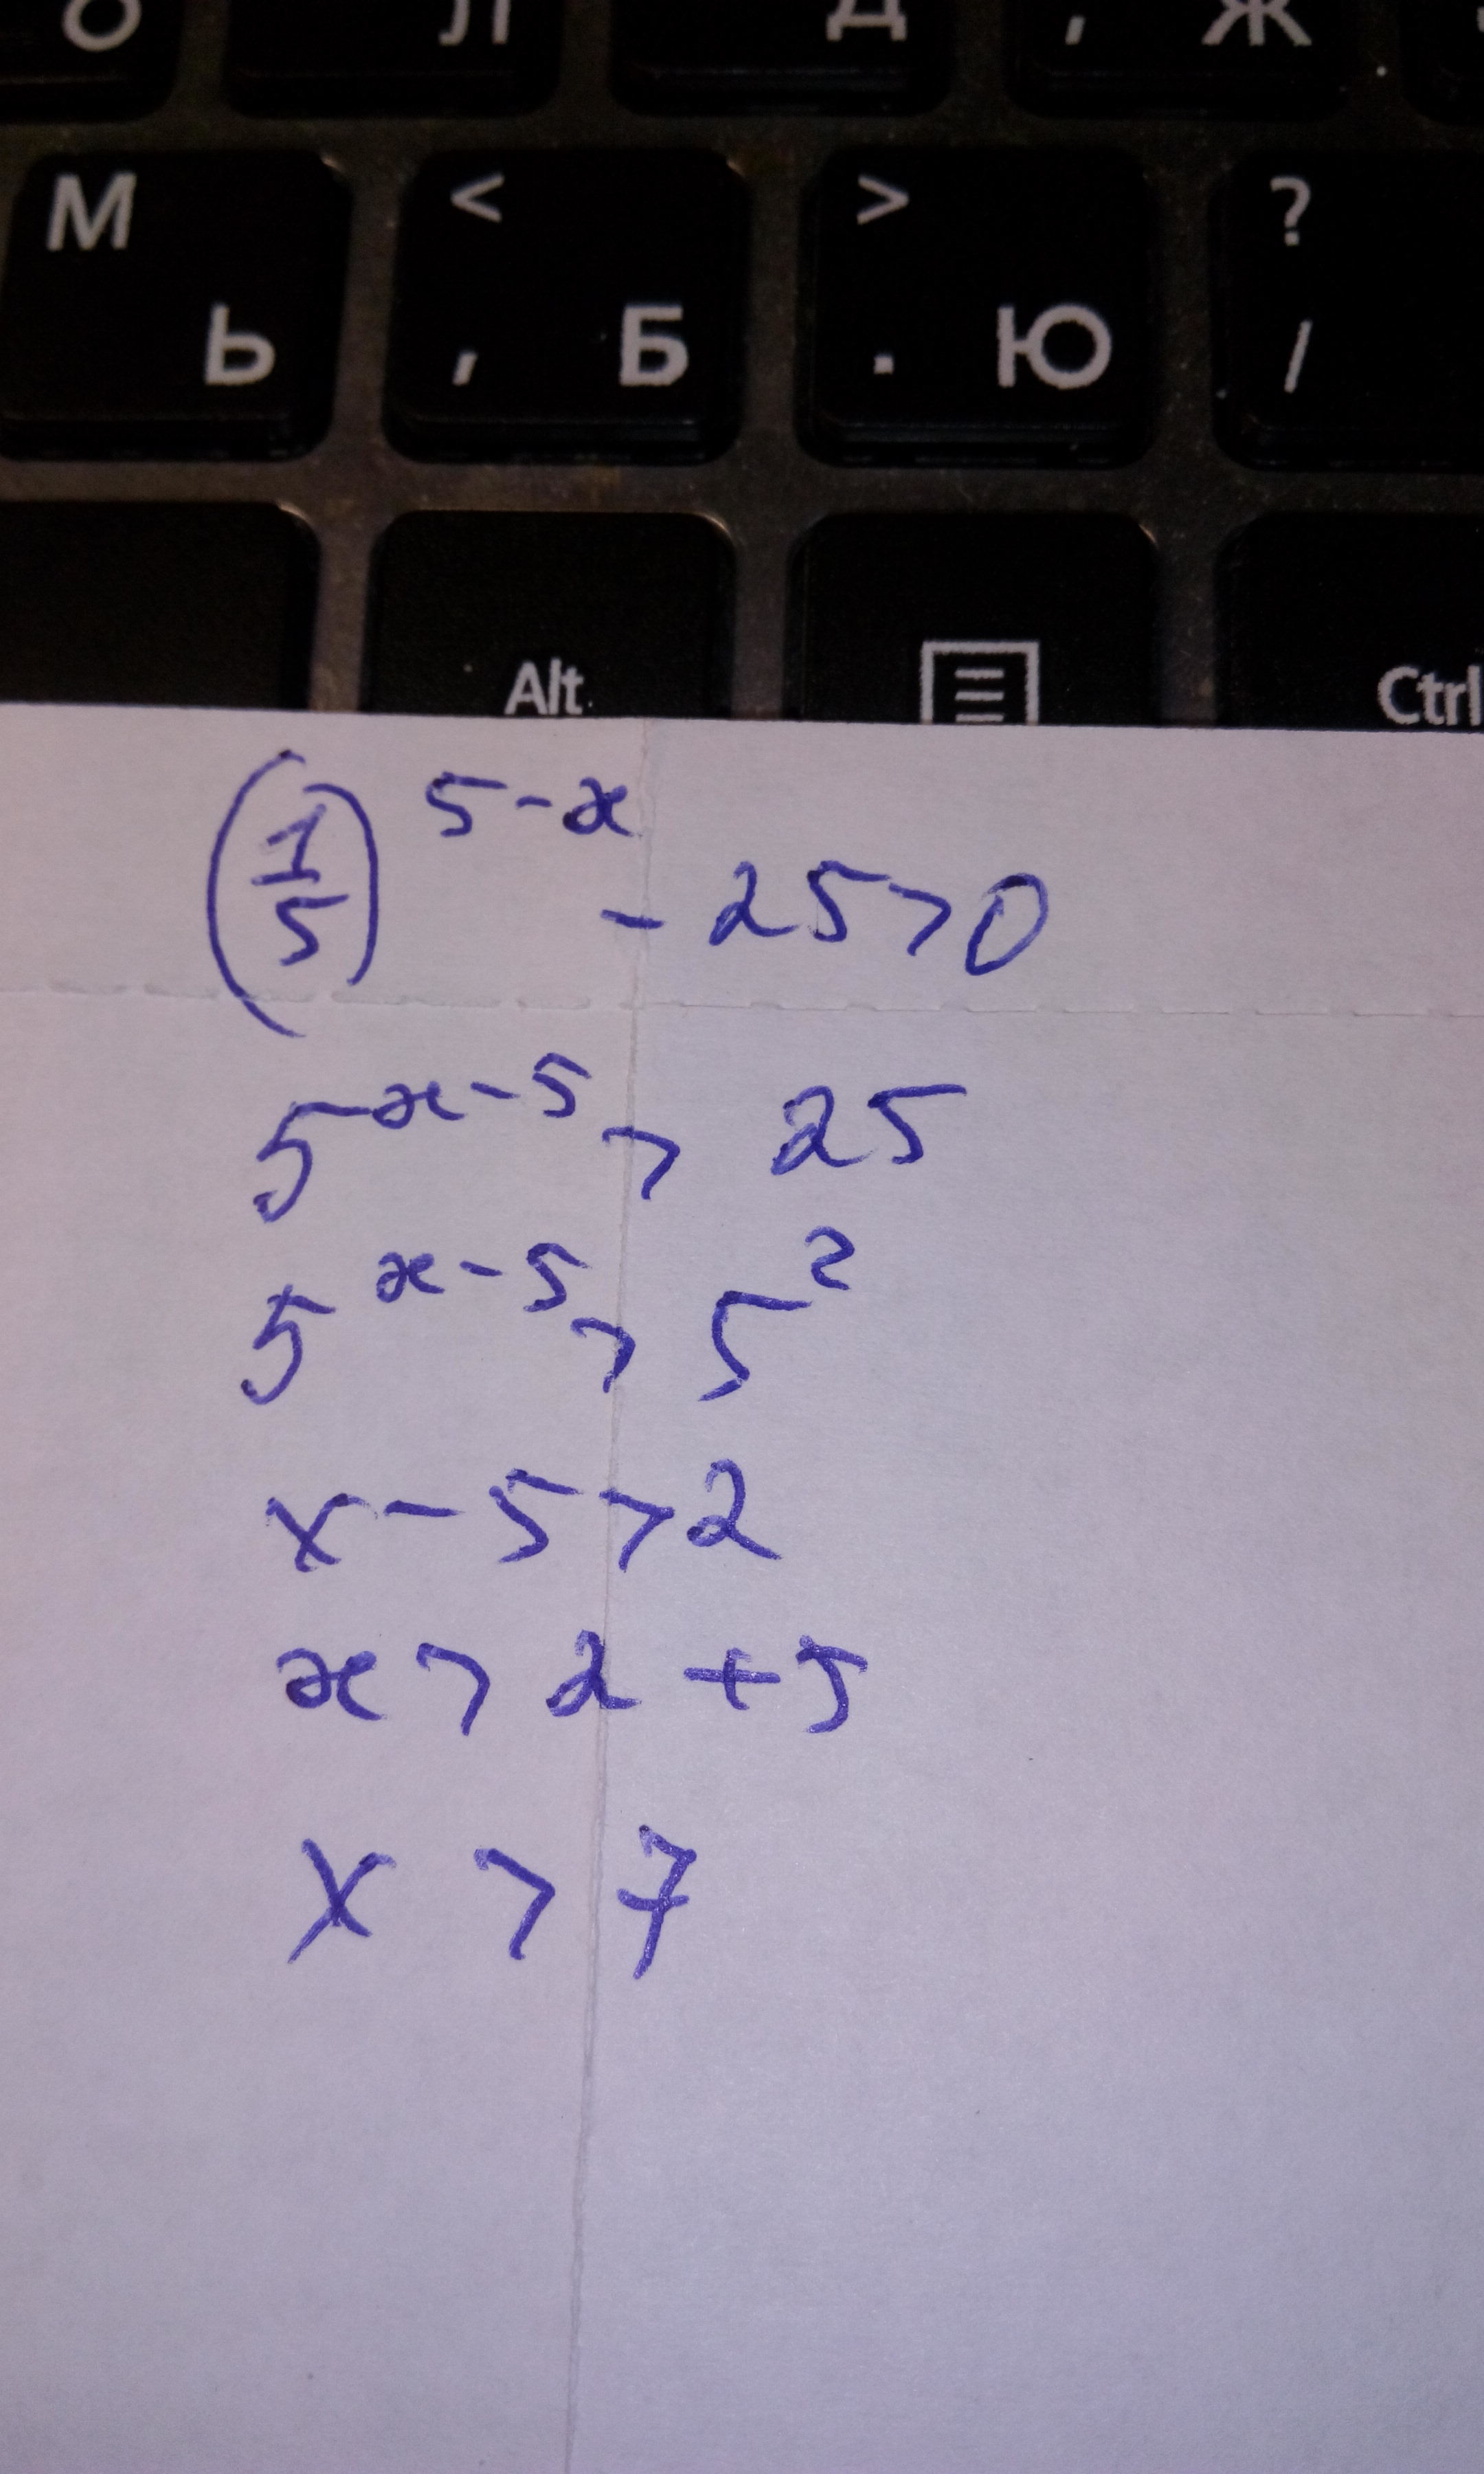 О Л Д , Ж
М Ь < , Б > . Ю ? /
Alt Ctrl
(1/5)^5-x - 25>0
5^x-5 > 25
5^x-5 > 5^2
x-5>2
x>2+5
x>7